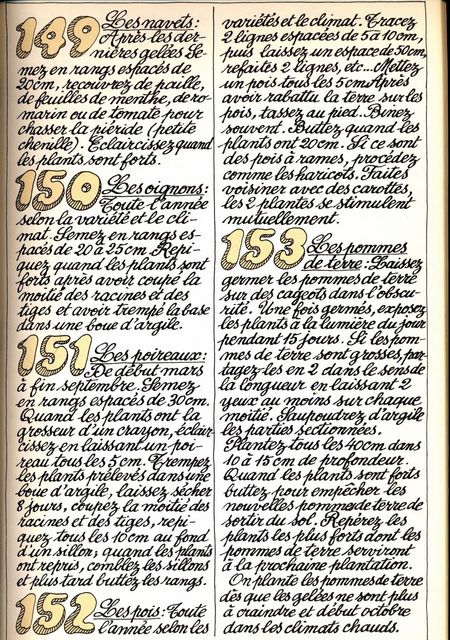 149 Les navets:
Après les der-
nières gelées Se-
mez en rangs espacés de
20cm, recouvrez de paille,
de feuilles de menthe, de ro-
marin ou de tomate pour
chasser la piéride (petite
chenille). Eclaircissez quand
les plants sont forts.
150 Les oignons:
Toute l'année
selon la variété et le cli-
mat. Semez en rangs es-
pacés de 20 à 25 cm. Repi-
quez quand les plants sont
forts après avoir coupé la
moitié des racines et des
tiges et avoir trempé la base
dans une boue d'argile.
151 Les poireaux:
De début mars
à fin septembre. Semez
en rangs espacés de 30cm.
Quand les plants ont la
grosseur d'un crayon, éclair-
cissez en laissant un poi-
reau tous les 5 cm. Trempez
les plants prélevés dans une
boue d'argile, laissez sécher
8 jours, coupez la moitié des
racines et des tiges, repi-
quez tous les 10cm au fond
d'un sillon; quand les plants
ont repris, comblez les sillons
et plus tard buttez les rangs.
152 Les pois: Toute
l'année selon les
variétés et le climat. Tracez
2 lignes espacées de 5 à 10cm,
puis laissez un espace de 50cm,
refaites 2 lignes, etc... Mettez
un pois tous les 5cm Après
avoir rabattu la terre sur les
pois, tassez au pied. Binez
souvent. Buttez quand les
plants ont 20cm. Si ce sont
des pois à rames, procédez
comme les haricots. Faites
voisiner avec des carottes,
les 2 plantes se stimulent
mutuellement.
153 Les pommes
de terre: Laissez
germer les pommes de terre
sur des cageots dans l'obscu-
rité. Une fois germés, exposez
les plants à la lumière du jour
pendant 15 jours. Si les pom-
mes de terre sont grosses, par-
tagez-les en 2 dans le sens de
la longueur en laissant 2
yeux au moins sur chaque
moitié. Saupoudrez d'argile
les parties sectionnées.
Plantez tous les 40cm dans
10 à 15cm de profondeur.
Quand les plants sont forts
buttez pour empêcher les
nouvelles pommes de terre de
sortir du sol. Repérez les
plants les plus forts dont les
pommes de terre serviront
à la prochaine plantation.
On plante les pommes de terre
dès que les gelées ne sont plus
à craindre et début octobre
dans les climats chauds.